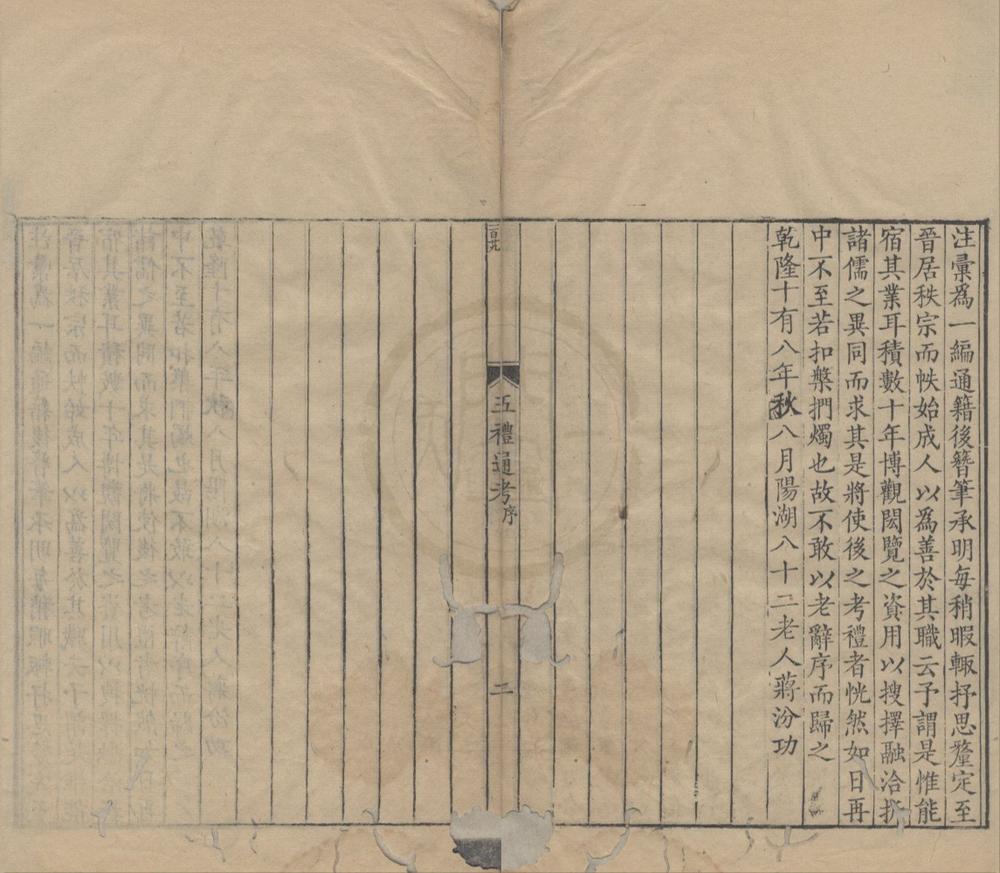 注彙爲一編通籍後簪筆承明每稍暇輒抒思釐定至
晉居秩宗而帙始成人以爲善於其職云予謂是惟能
宿其業耳積數十年博觀閎覽之資用以搜擇融洽折
諸儒之異同而求其是將使後之考禮者恍然如日再
中不至若扣槃捫燭也故不敢以老辭序而歸之
乾隆十有八年秋八月陽湖八十二老人蔣汾功
五禮通考序
三